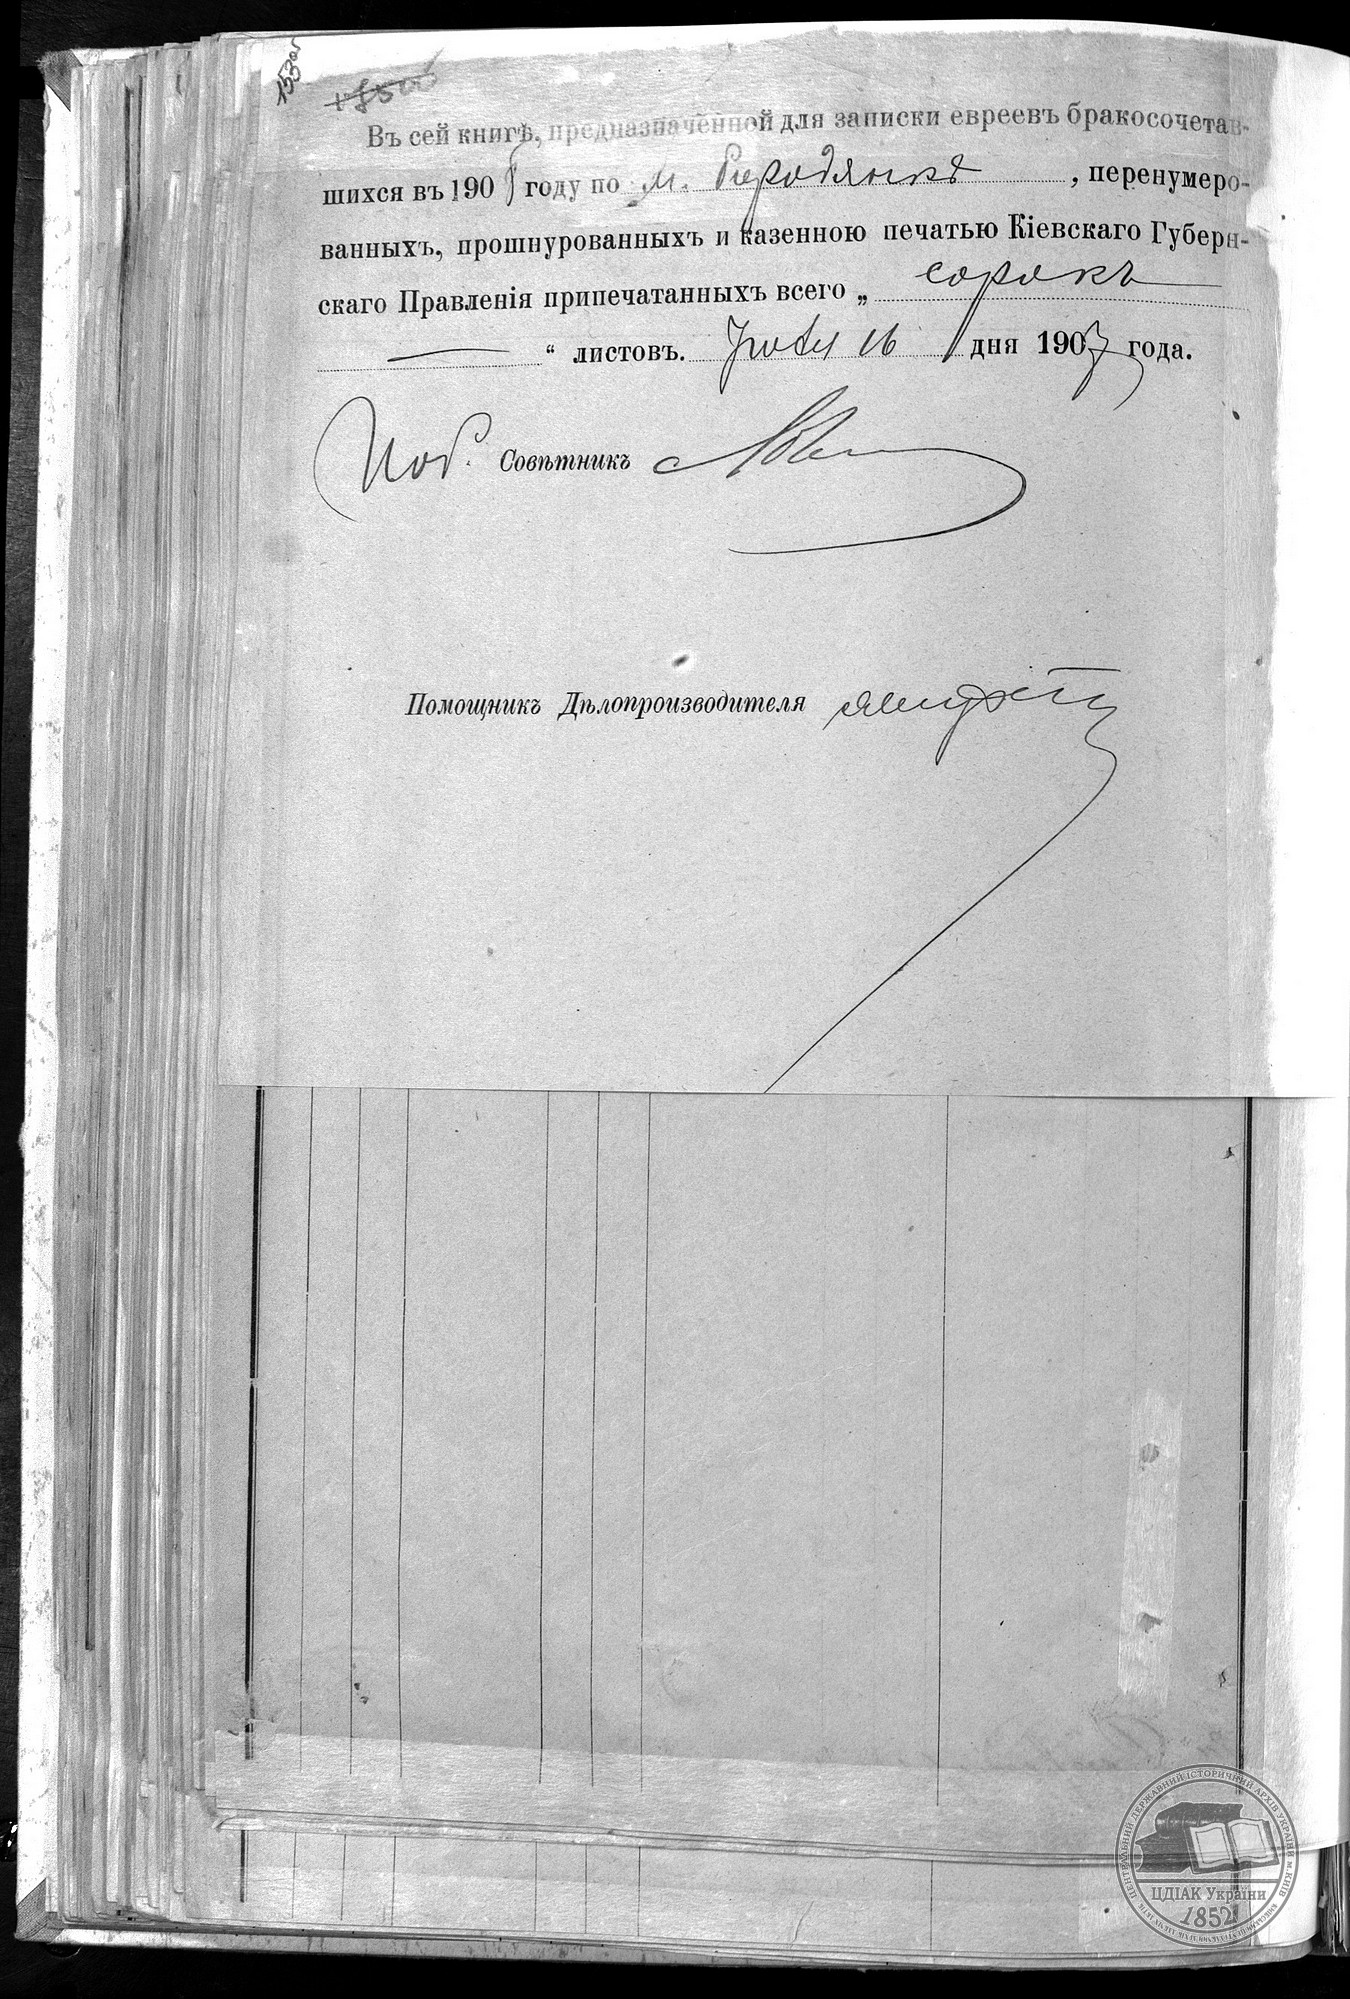 153об
Въ сей книгѣ, предназначенной для записки евреевъ бракосочетав-
шихся въ 1908 году по м. Бородянкѣ, перенумеро-
ванныхъ, прошнурованныхъ и казенною печатью Кіевскаго Губерн-
скаго Правленія припечатанныхъ всего „ сорокъ
— “ листовъ. 16 дня 1907 года.
Совѣтникъ
Помощникъ Дѣлопроизводителя
ЦЕНТРАЛЬНИЙ ДЕРЖАВНИЙ ІСТОРИЧНИЙ АРХІВ УКРАЇНИ М. КИЇВ
ЦДІАК України
1852